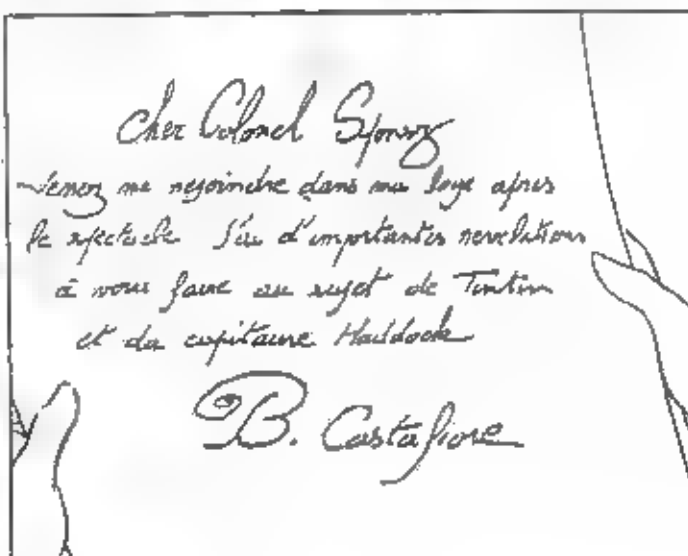 Cher Colonel Sponsz
Venez me rejoindre dans ma loge apres
le spectacle J'ai d'importantes revelations
à vous faire au sujet de Tintin
et du capitaine Haddock
B. Castafiore